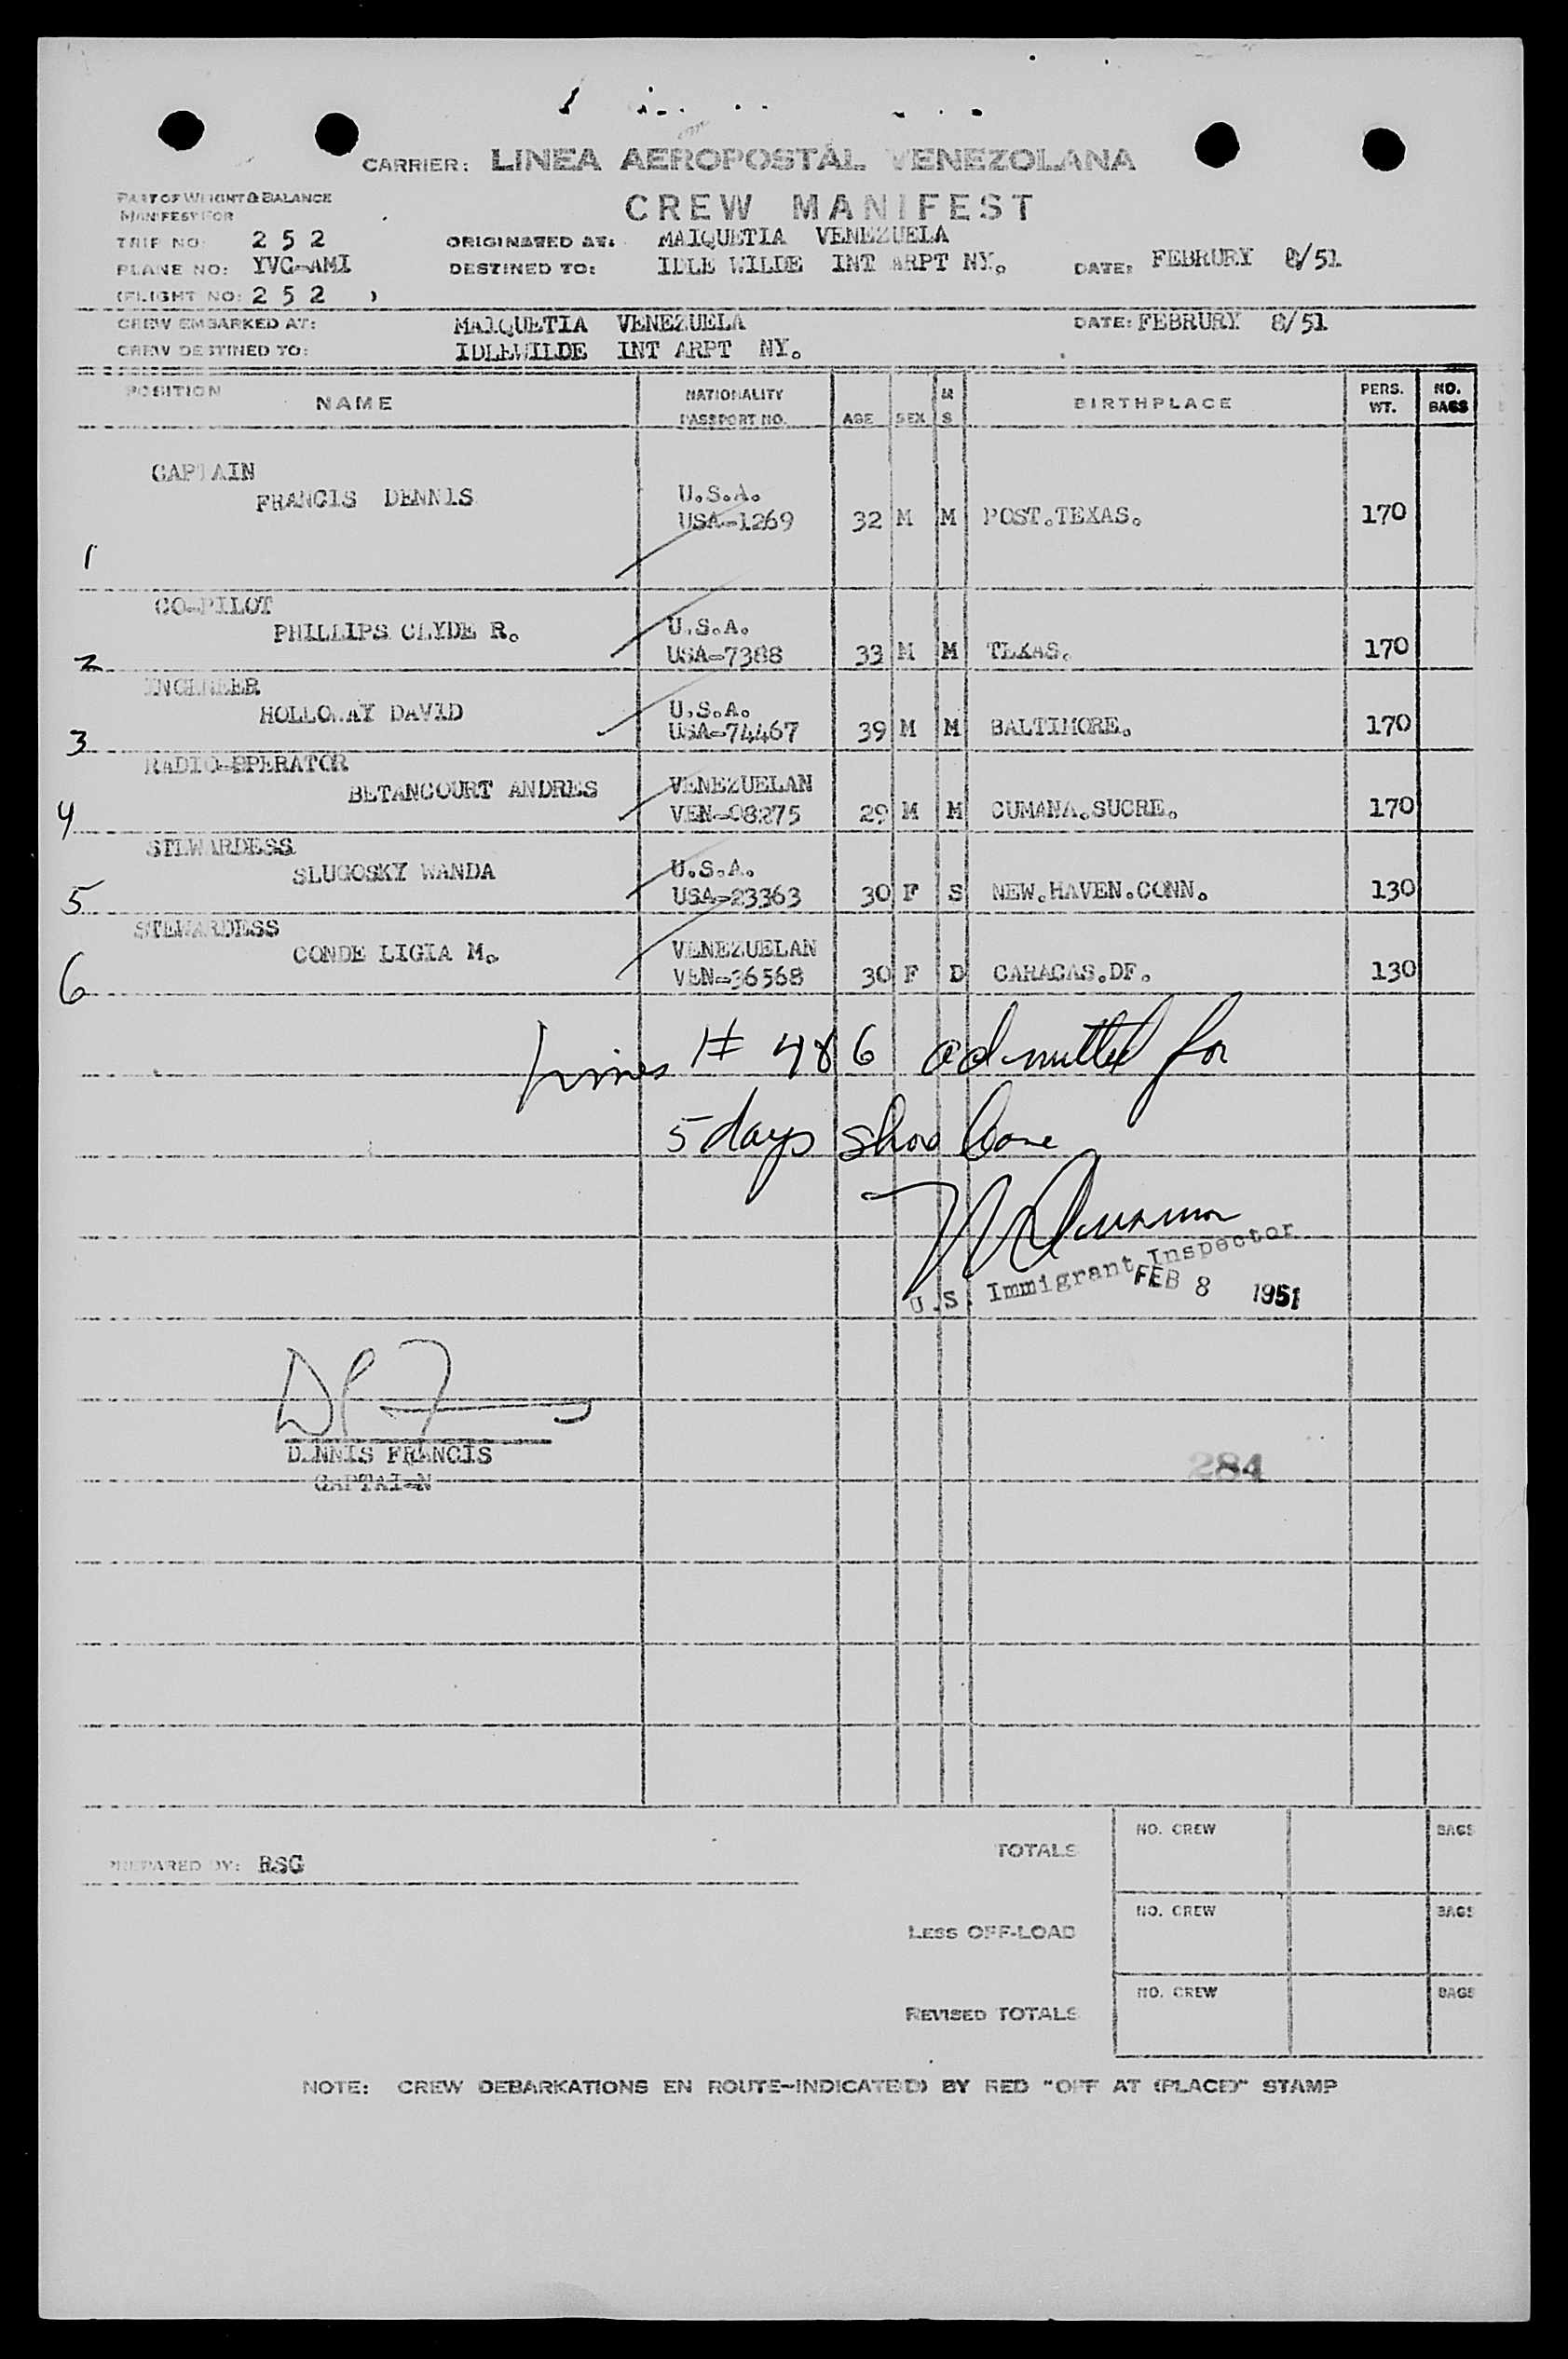 CARRIER: LINEA AEROPOSTAL VENEZOLANA
PART OF WEIGHT & BALANCE
MANIFEST FOR
CREW MANIFEST
TRIP NO: 2 5 2 ORIGINATED AT: MAIQUETIA VENEZUELA
PLANE NO: YVC-AMI DESTINED TO: IDLE WILDE INT ARPT NY. DATE: FEBRURY 8/51
(FLIGHT NO: 2 5 2 )
CREW EMBARKED AT: MAIQUETIA VENEZUELA DATE: FEBRURY 8/51
CREW DESTINED TO: IDLEWILDE INT ARPT NY.
POSITION NAME NATIONALITY PASSPORT NO. AGE SEX M S BIRTHPLACE PERS. WT. NO. BAGS
CAPTAIN
FRANCIS DENNIS U.S.A.
USA-1269 32 M M POST.TEXAS. 170
1
CO-PILOT
PHILLIPS CLYDE R. U.S.A.
2 USA-7388 33 M M TEXAS. 170
ENGINEER
HOLLOWAY DAVID U.S.A.
3 USA-74467 39 M M BALTIMORE. 170
RADIO-OPERATOR
BETANCOURT ANDRES VENEZUELAN
4 VEN-08275 29 M M CUMANA.SUCRE. 170
STEWARDESS
SLUGOSKY WANDA U.S.A.
5 USA-23363 30 F S NEW.HAVEN.CONN. 130
STEWARDESS
CONDE LIGIA M. VENEZUELAN
6 VEN-36568 30 F D CARACAS.DF. 130
# 4 & 6 admitted for
5 days shore leave
U.S. Immigrant Inspector
FEB 8 1951
DENNIS FRANCIS
CAPTAI-N
284
PREPARED BY: RSG
TOTALS NO. CREW BAGS
LESS OFF-LOAD NO. CREW BAGS
REVISED TOTALS NO. CREW BAGS
NOTE: CREW DEBARKATIONS EN ROUTE-INDICATE(D) BY RED "OFF AT (PLACE)" STAMP